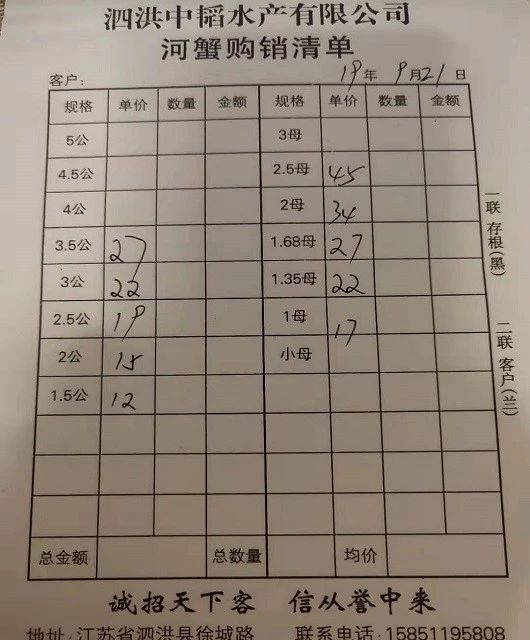 泗洪中韬水产有限公司
河蟹购销清单
客户: 19年 9月21日
规格 单价 数量 金额 规格 单价 数量 金额
5公 3母
4.5公 2.5母 45
4公 2母 34
3.5公 27 1.68母 27
3公 22 1.35母 22
2.5公 19 1母 17
2公 15 小母
1.5公 12
总金额 总数量 均价
一联 存根(黑)
二联 客户(兰)
诚招天下客 信从誉中来
地址:江苏省泗洪县徐城路 联系电话:15851195808